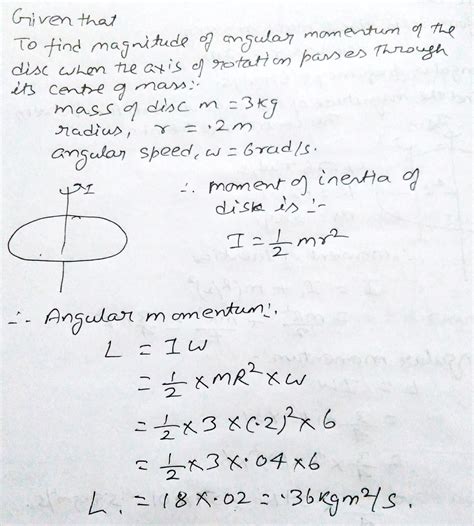 Given that
To find magnitude of angular momentum of the
disc when the axis of rotation passes through
its centre of mass:-
mass of disc m = 3kg
radius, r = .2m
angular speed, ω = 6rad/s.
I
∴ moment of inertia of
disk is :-
I = 1/2 mr²
∴ Angular momentum:.
L = Iω
= 1/2 × MR² × ω
= 1/2 × 3 × (.2)² × 6
= 1/2 × 3 × .04 × 6
L. = 18 × .02 = .36 kgm²/s.